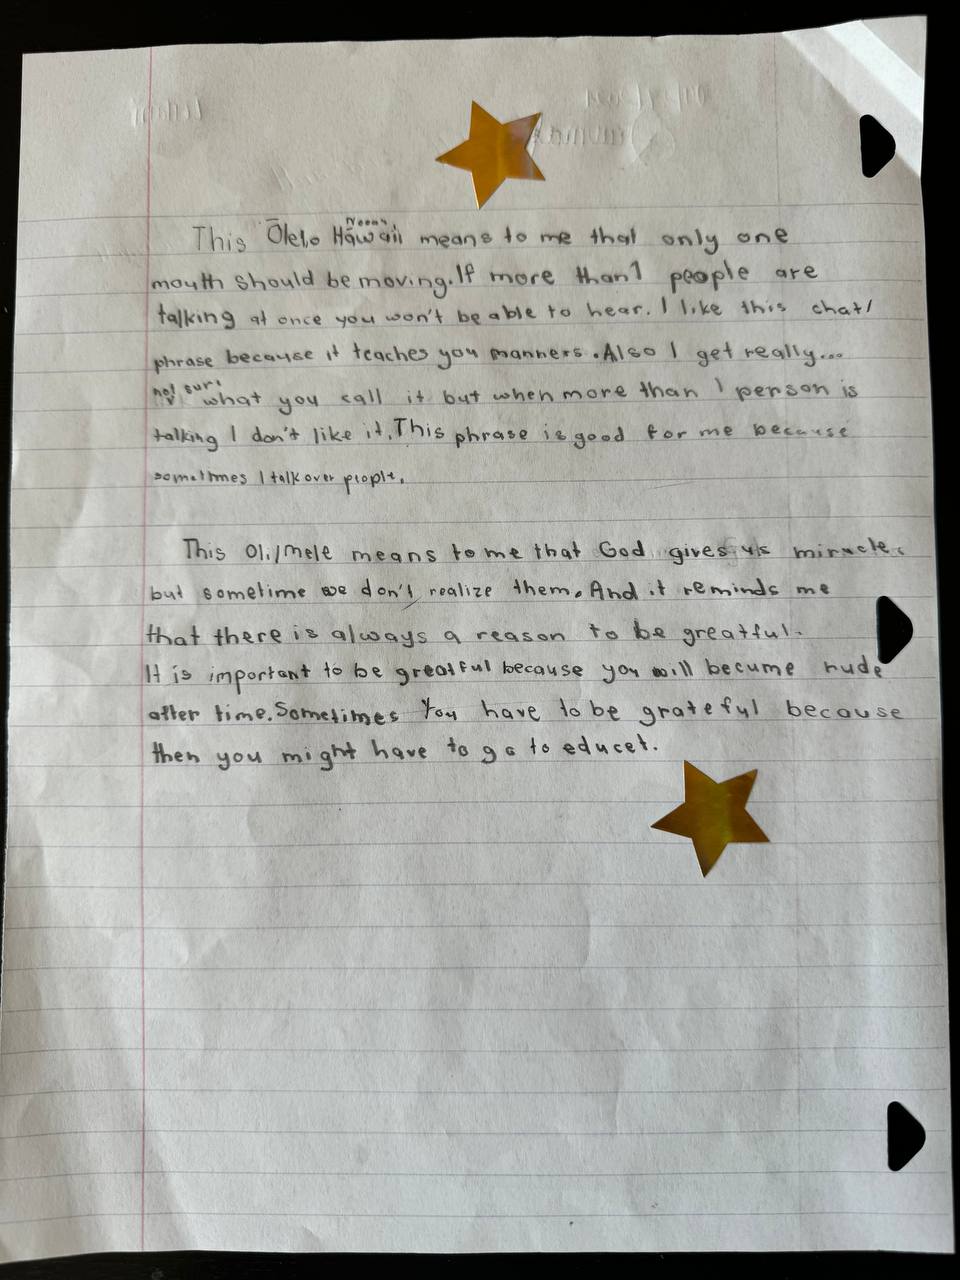 This Ōlelo Hāwaii means to me that only one
mouth should be moving. If more than 1 people are
talking at once you won't be able to hear. I like this chat/
phrase because it teaches you manners. Also I get really...
not sure what you call it but when more than 1 person is
talking I don't like it. This phrase is good for me because
sometimes I talk over people.
This Oli/Mele means to me that God gives us miracles
but sometime we don't realize them. And it reminds me
that there is always a reason to be greatful.
It is important to be greatful because you will becume rude
after time. Sometimes You have to be grateful because
then you might have to go to educet.